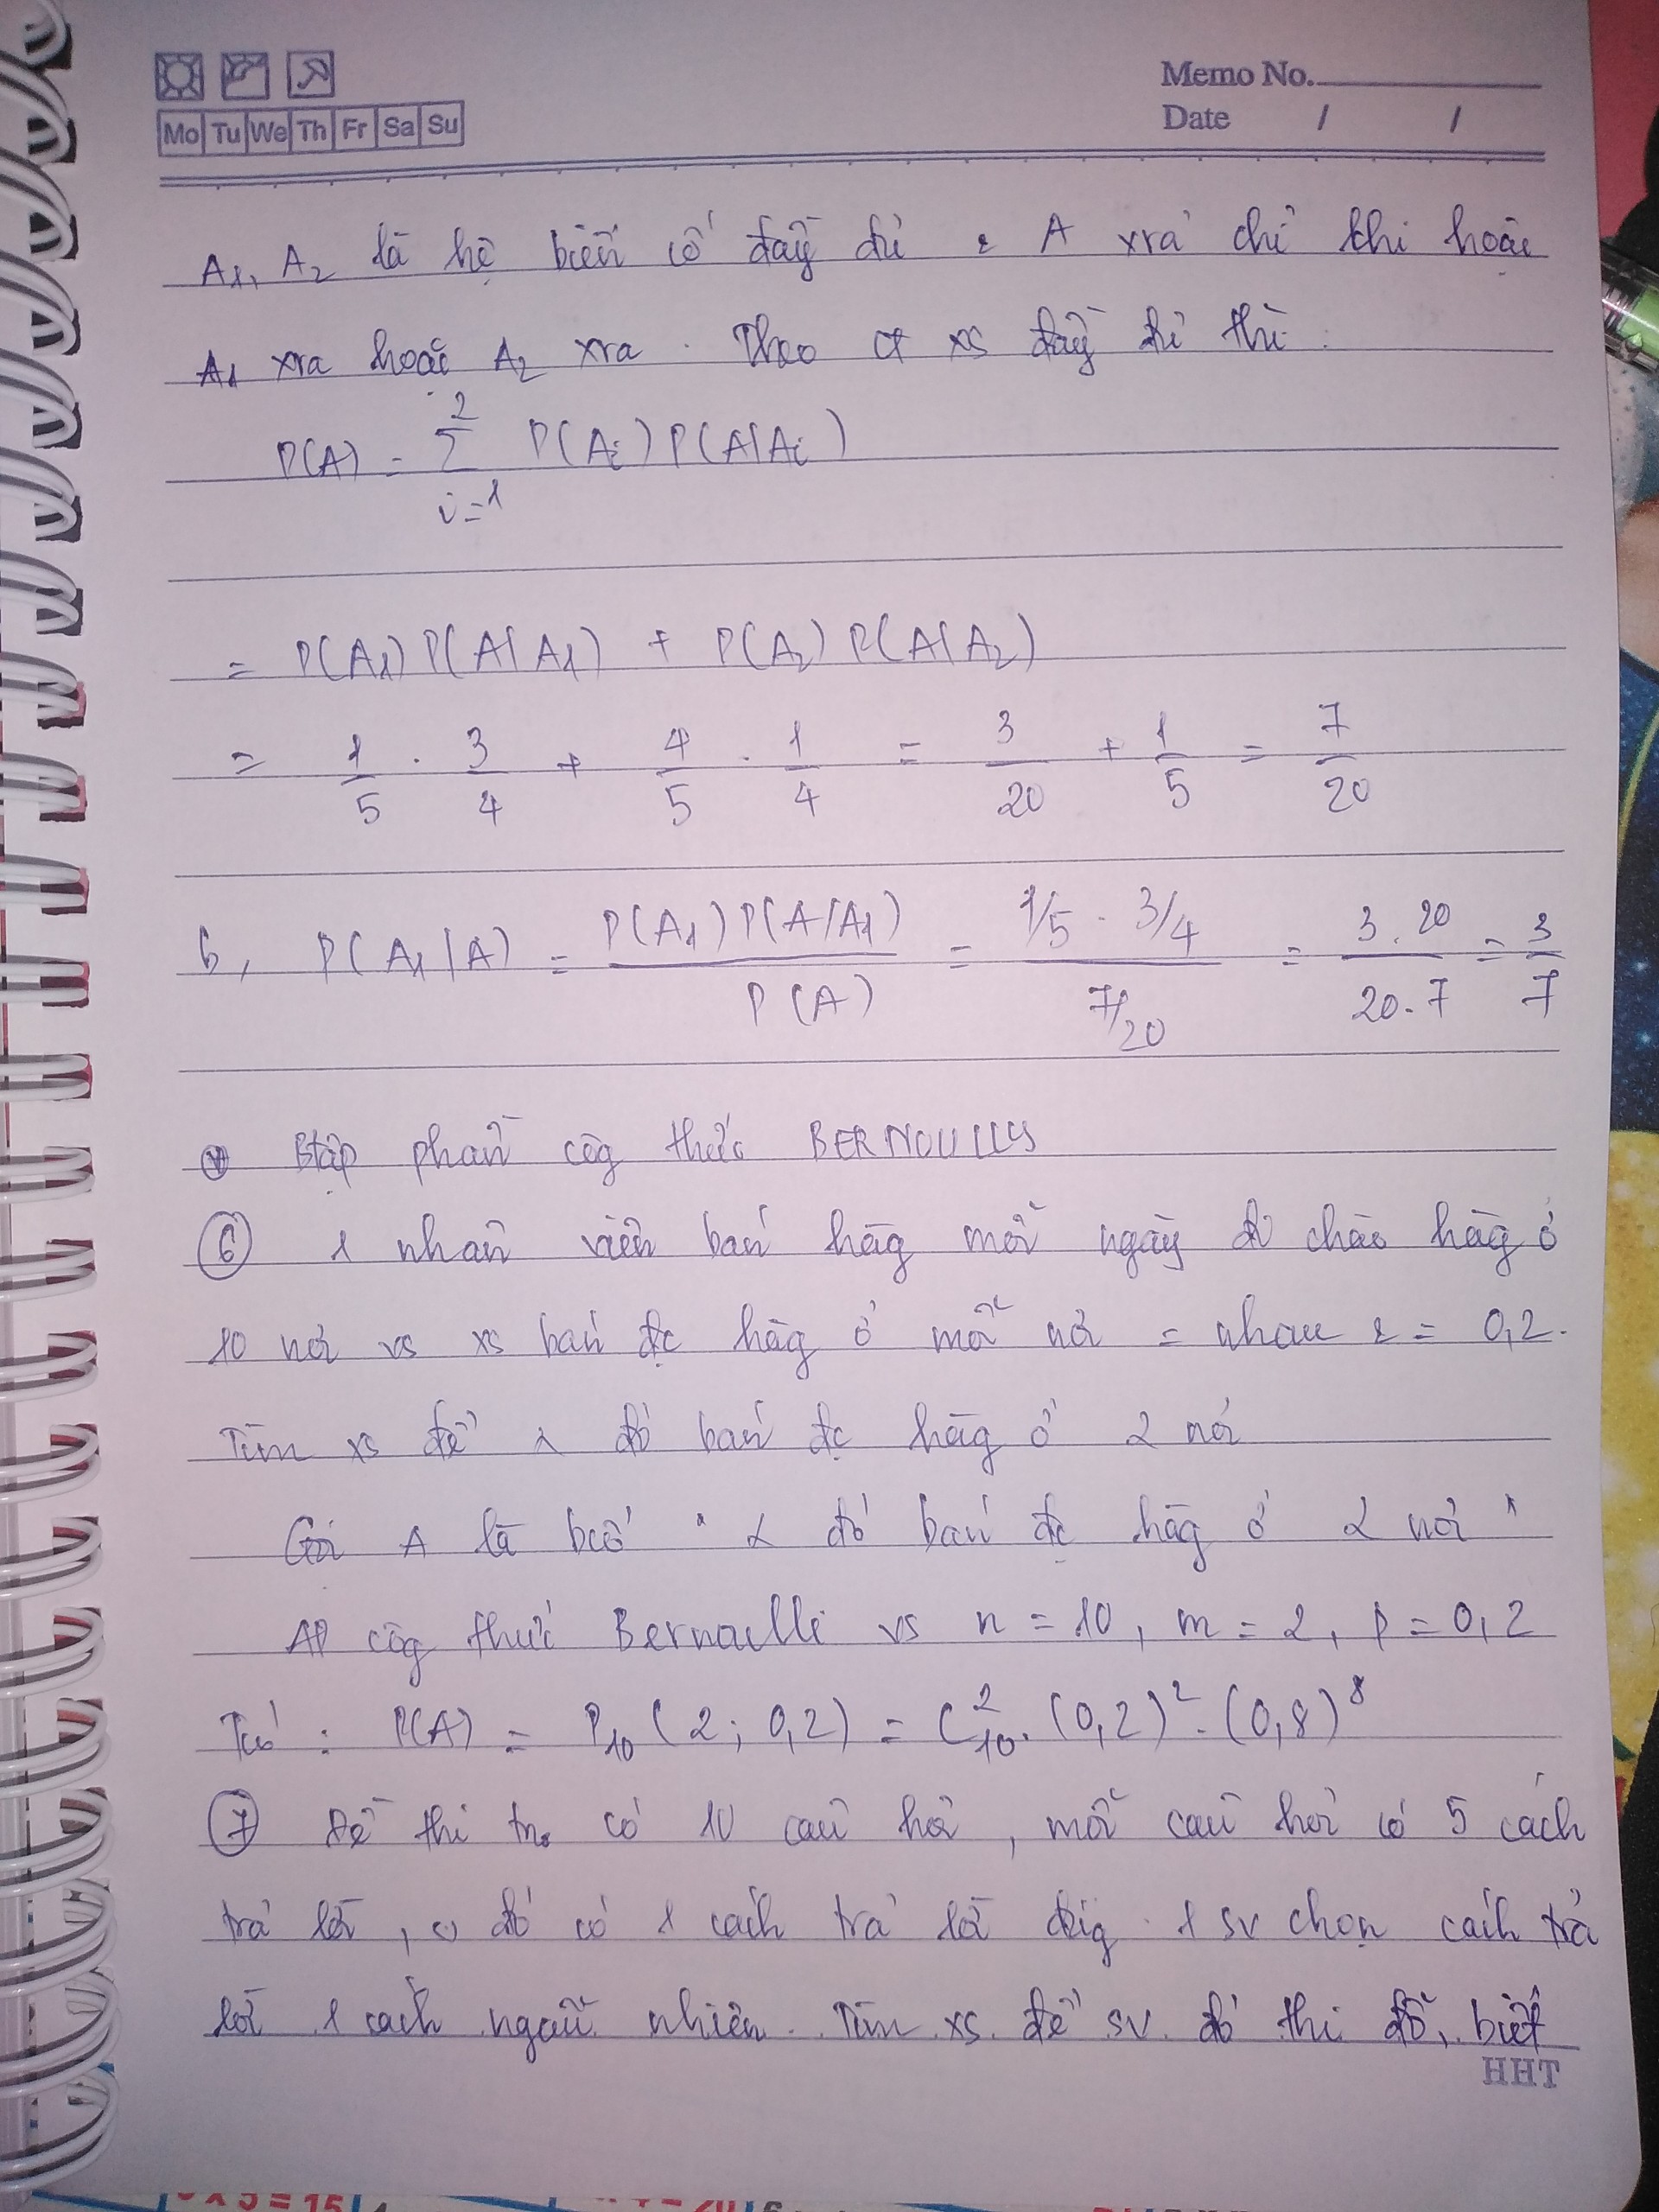 Memo No.
Mo Tu We Th Fr Sa Su
Date / /
A1, A2 là hệ biến cố đầy đủ & A xra chỉ khi hoặc
A1 xra hoặc A2 xra. Theo ct xs đầy đủ thì:
P(A) = Σ_{i=1}^{2} P(Ai) P(A|Ai)
= P(A1) P(A|A1) + P(A2) P(A|A2)
= 1/5 . 3/4 + 4/5 . 1/4 = 3/20 + 1/5 = 7/20
b, P(A1|A) = P(A1) P(A|A1) / P(A) = (1/5 . 3/4) / (7/20) = 3.20 / 20.7 = 3/7
Btập phần côg thức BERNOULLY
⑥ 1 nhân viên bán hàg mỗi ngày đi chào hàg ở
10 nơi vs xs bán đc hàg ở mỗi nơi = nhau & = 0,2.
Tìm xs để đó bán đc hàg ở 2 nơi
Gọi A là bcố " đó bán đc hàg ở 2 nơi "
AD côg thức Bernoulli vs n = 10, m = 2, p = 0,2
Tcó : P(A) = P10 (2; 0,2) = C²10. (0,2)². (0,8)⁸
⑦ Đề thi có 10 câu hỏi, mỗi câu hỏi có 5 cách
trả lời, đó có 1 cách trả lời đúg. 1 sv chọn cách trả
lời 1 cách ngẫu nhiên. Tìm xs để sv đó thi đỗ, biết
HHT